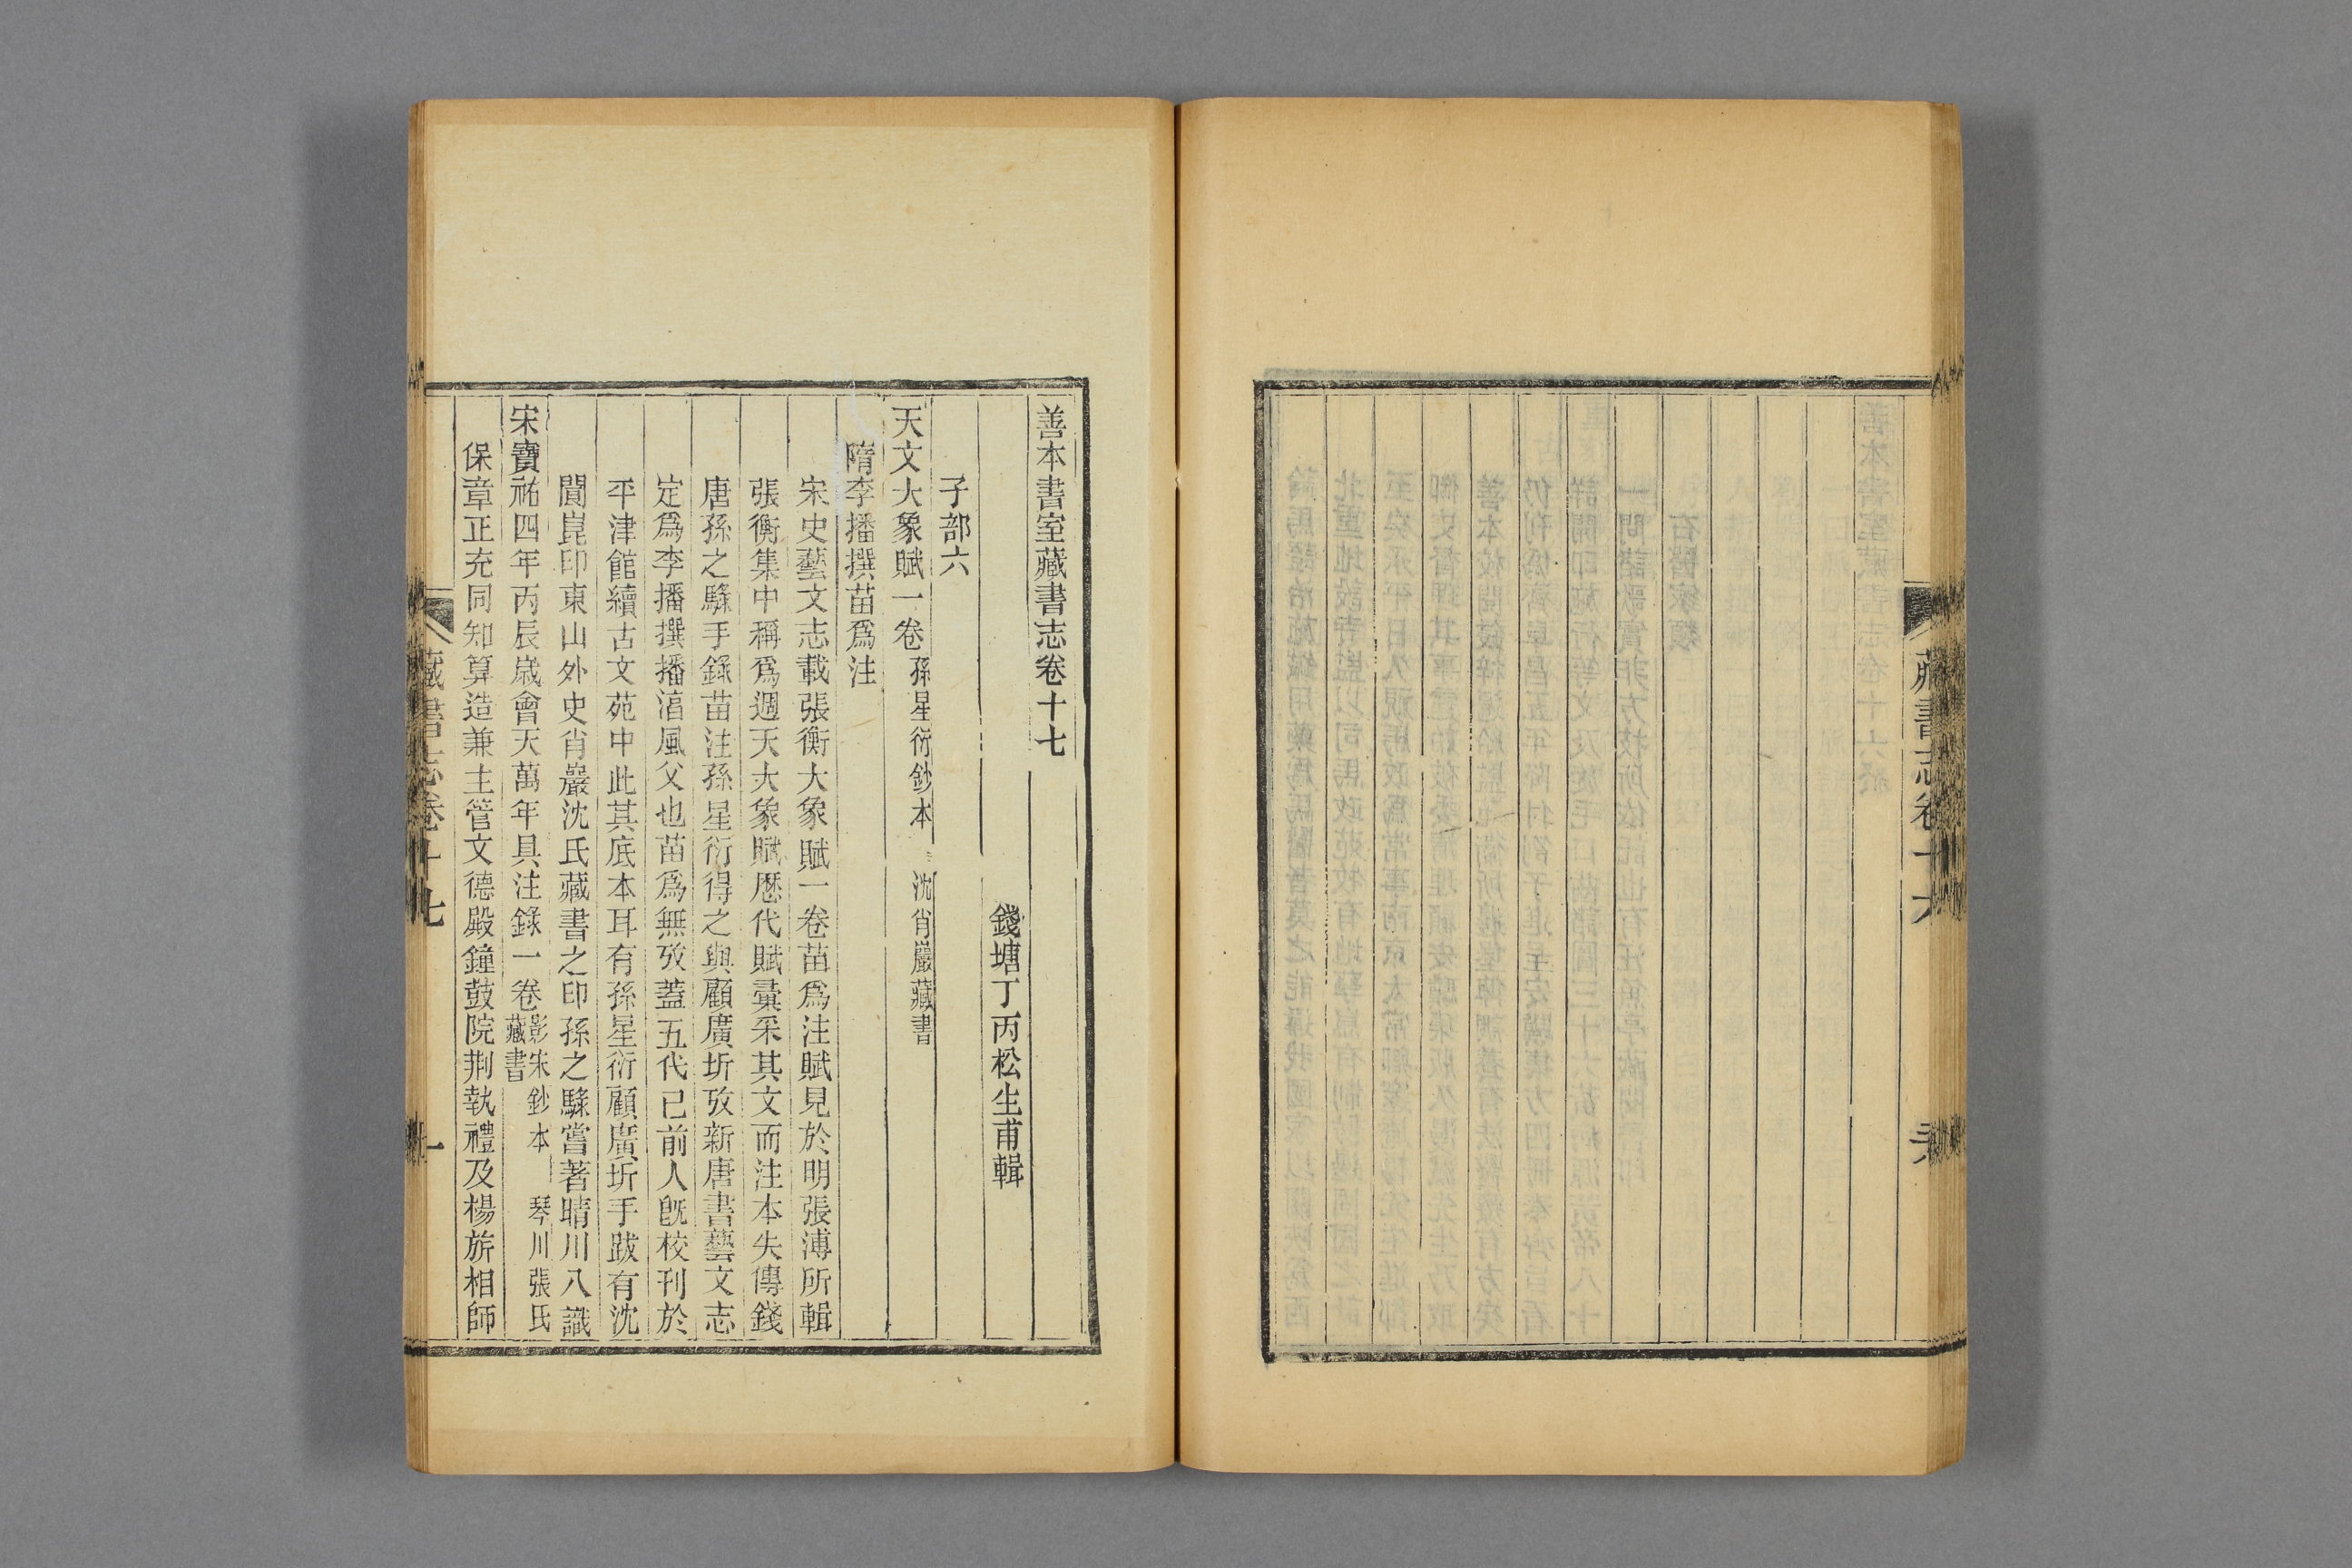 藏書志卷十六
善本書室藏書志卷十七
錢塘丁丙松生甫輯
子部六
天文大象賦一卷 孫星衍鈔本 沈肖巖藏書
隋李播撰苗爲注
宋史藝文志載張衡大象賦一卷苗爲注賦見於明張溥所輯
張衡集中稱爲週天大象賦歷代賦彙采其文而注本失傳錢
唐孫之騄手錄苗注孫星衍得之與顧廣圻攷新唐書藝文志
定爲李播撰播淳風父也苗爲無攷蓋五代已前人旣校刊於
平津館續古文苑中此其底本耳有孫星衍顧廣圻手跋有沈
閬崑印東山外史肖巖沈氏藏書之印孫之騄嘗著晴川八識
宋寶祐四年丙辰歲會天萬年具注錄一卷 影宋鈔本 琴川張氏藏書
保章正充同知算造兼主管文德殿鐘鼓院荆執禮及楊旂相師
藏書志卷十七
一